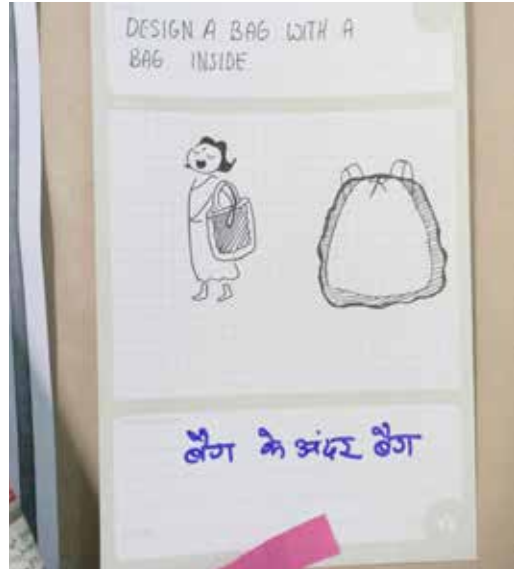 DESIGN A BAG WITH A
BAG INSIDE
बैग के अंदर बैग